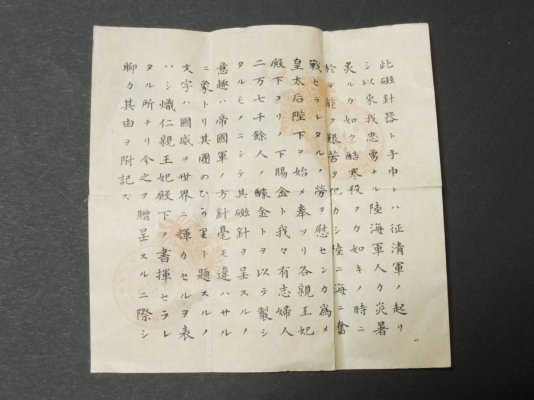 此磁針器ト手巾トハ征清軍ノ起リ
シ以來我忠勇ナル陸海軍人カ炎暑
炙ルカ如ク酷寒殺スカ如キノ時ニ
於テ能ク艱苦ヲ犯カシ陸ニ海ニ奮
戰セラレタルノ勞ヲ慰センカ爲メ
皇太后陛下ヲ始メ奉ツリ各親王妃
殿下ヨリノ下賜金ト我々有志婦人
二万七千餘人ノ醵金トヲ以テ製シ
タルモノニシテ其磁針ヲ呈スルノ
意趣ハ帝國軍ノ方針毫モ違ハサル
ニ象トリ其國のひかりト題スルノ
文字ハ國威ヲ世界ニ輝カセルヲ表
ハシ熾仁親王妃殿下ノ書揮セラレ
タル所ナリ今之ヲ贈呈スルニ際シ
聊カ其由ヲ附記ス